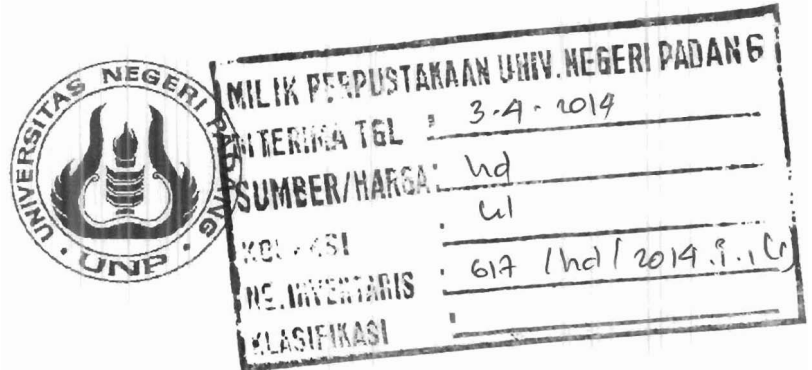 UNIVERSITAS NEGERI PADANG
UNP
MILIK PERPUSTAKAAN UNIV. NEGERI PADANG
DITERIMA TGL : 3-4-2014
SUMBER/HARGA : hd
KOLEKSI :
NO. INVENTARIS : 617 /hd/ 2014
KLASIFIKASI :